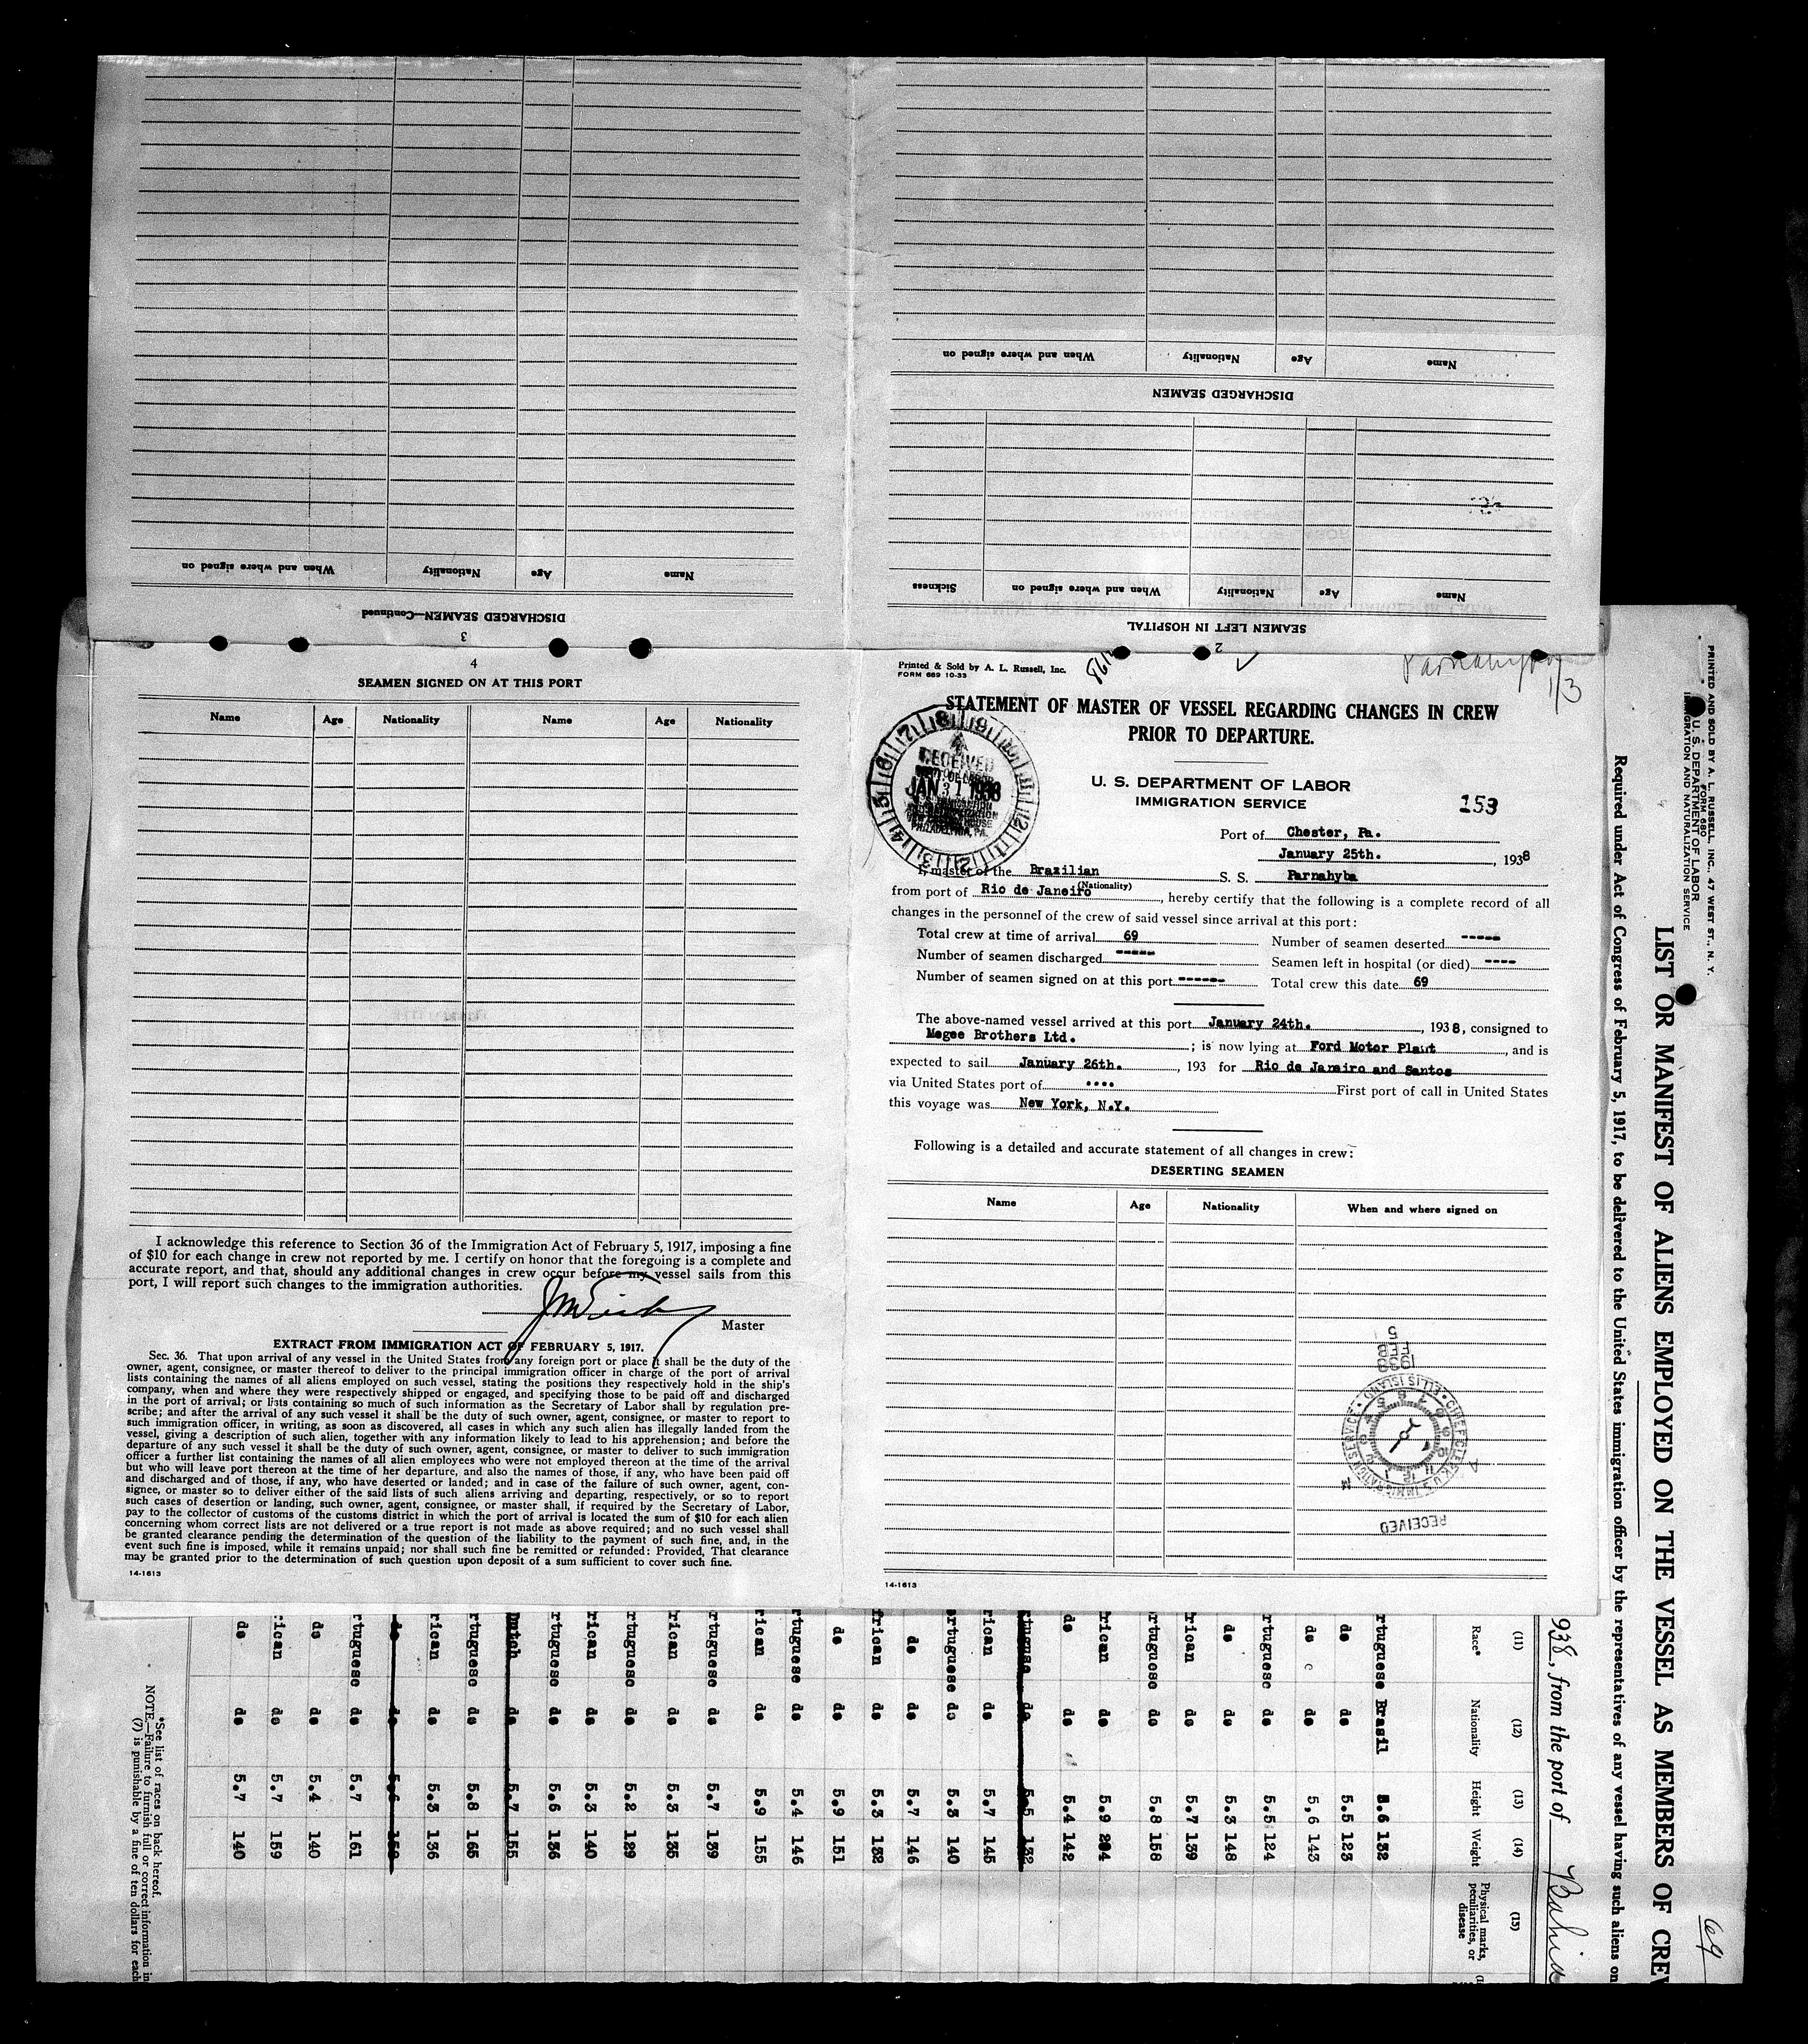 Name Age Nationality When and where signed on
DISCHARGED SEAMEN—Continued
3
Name Age Nationality When and where signed on
DISCHARGED SEAMEN
Name Age Nationality When and where signed on Sickness
SEAMEN LEFT IN HOSPITAL
2
4
SEAMEN SIGNED ON AT THIS PORT
Name Age Nationality Name Age Nationality
I acknowledge this reference to Section 36 of the Immigration Act of February 5, 1917, imposing a fine
of $10 for each change in crew not reported by me. I certify on honor that the foregoing is a complete and
accurate report, and that, should any additional changes in crew occur before my vessel sails from this
port, I will report such changes to the immigration authorities.
Master
EXTRACT FROM IMMIGRATION ACT OF FEBRUARY 5, 1917.
Sec. 36. That upon arrival of any vessel in the United States from any foreign port or place it shall be the duty of the
owner, agent, consignee, or master thereof to deliver to the principal immigration officer in charge of the port of arrival
lists containing the names of all aliens employed on such vessel, stating the positions they respectively hold in the ship's
company, when and where they were respectively shipped or engaged, and specifying those to be paid off and discharged
in the port of arrival; or lists containing so much of such information as the Secretary of Labor shall by regulation pre-
scribe; and after the arrival of any such vessel it shall be the duty of such owner, agent, consignee, or master to report to
such immigration officer, in writing, as soon as discovered, all cases in which any such alien has illegally landed from the
vessel, giving a description of such alien, together with any information likely to lead to his apprehension; and before the
departure of any such vessel it shall be the duty of such owner, agent, consignee, or master to deliver to such immigration
officer a further list containing the names of all alien employees who were not employed thereon at the time of the arrival
but who will leave port thereon at the time of her departure, and also the names of those, if any, who have been paid off
and discharged and of those, if any, who have deserted or landed; and in case of the failure of such owner, agent, con-
signee, or master so to deliver either of the said lists of such aliens arriving and departing, respectively, or so to report
such cases of desertion or landing, such owner, agent, consignee, or master shall, if required by the Secretary of Labor,
pay to the collector of customs of the customs district in which the port of arrival is located the sum of $10 for each alien
concerning whom correct lists are not delivered or a true report is not made as above required; and no such vessel shall
be granted clearance pending the determination of the question of the liability to the payment of such fine, and, in the
event such fine is imposed, while it remains unpaid; nor shall such fine be remitted or refunded: Provided, That clearance
may be granted prior to the determination of such question upon deposit of a sum sufficient to cover such fine.
14-1613
Printed & Sold by A. L. Russell, Inc.
FORM 689 10-33
Parnahyba
1/3
STATEMENT OF MASTER OF VESSEL REGARDING CHANGES IN CREW
PRIOR TO DEPARTURE.
RECEIVED
JAN 31 1938
PHILADELPHIA, PA.
U. S. DEPARTMENT OF LABOR
IMMIGRATION SERVICE
153
Port of Chester, Pa.
January 25th. , 1938
I, master of the Brazilian S. S. Parnahyba
(Nationality)
from port of Rio de Janeiro , hereby certify that the following is a complete record of all
changes in the personnel of the crew of said vessel since arrival at this port:
Total crew at time of arrival 69 Number of seamen deserted -----
Number of seamen discharged ----- Seamen left in hospital (or died) ----
Number of seamen signed on at this port ------ Total crew this date 69
The above-named vessel arrived at this port January 24th. , 1938, consigned to
Megee Brothers Ltd. ; is now lying at Ford Motor Plant , and is
expected to sail January 26th. , 193 for Rio de Janeiro and Santos
via United States port of .... First port of call in United States
this voyage was New York, N.Y.
Following is a detailed and accurate statement of all changes in crew:
DESERTING SEAMEN
Name Age Nationality When and where signed on
RECEIVED
U.S. IMMIGRATION SERVICE
ELLIS ISLAND
1938
FEB
5
14-1613
PRINTED AND SOLD BY A. L. RUSSELL, INC., 47 WEST ST., N. Y.
FORM 680
U. S. DEPARTMENT OF LABOR
IMMIGRATION AND NATURALIZATION SERVICE
69
LIST OR MANIFEST OF ALIENS EMPLOYED ON THE VESSEL AS MEMBERS OF CREW
Required under Act of Congress of February 5, 1917, to be delivered to the United States immigration officer by the representatives of any vessel having such aliens on
938, from the port of Bahia
(11) (12) (13) (14) (15)
Race* Nationality Height Weight Physical marks, peculiarities, or disease
rtuguese Brasil 5.6 132
do do 5.5 123
do do 5,6 143
rtuguese do 5.5 124
do do 5.3 148
rican do 5.7 139
rtuguese do 5.8 158
rican do 5.9 204
do do 5.4 142
rtuguese do 5.5 132
rican do 5.7 145
ortuguese do 5.3 140
do do 5.7 146
frican do 5.3 132
do do 5.9 151
rtuguese do 5.4 146
rican do 5.9 155
rtuguese do 5.7 139
rican do 5.3 135
rtuguese do 5.2 129
rican do 5.3 140
rtuguese do 5.6 136
Dutch do 5.7 155
rtuguese do 5.8 165
rican do 5.3 136
do do 5.6
rtuguese do 5.7 161
do do 5.4 140
rican do 5.7 159
do do 5.7 140
*See list of races on back hereof.
NOTE.—Failure to furnish full or correct information in
(7) is punishable by a fine of ten dollars for each